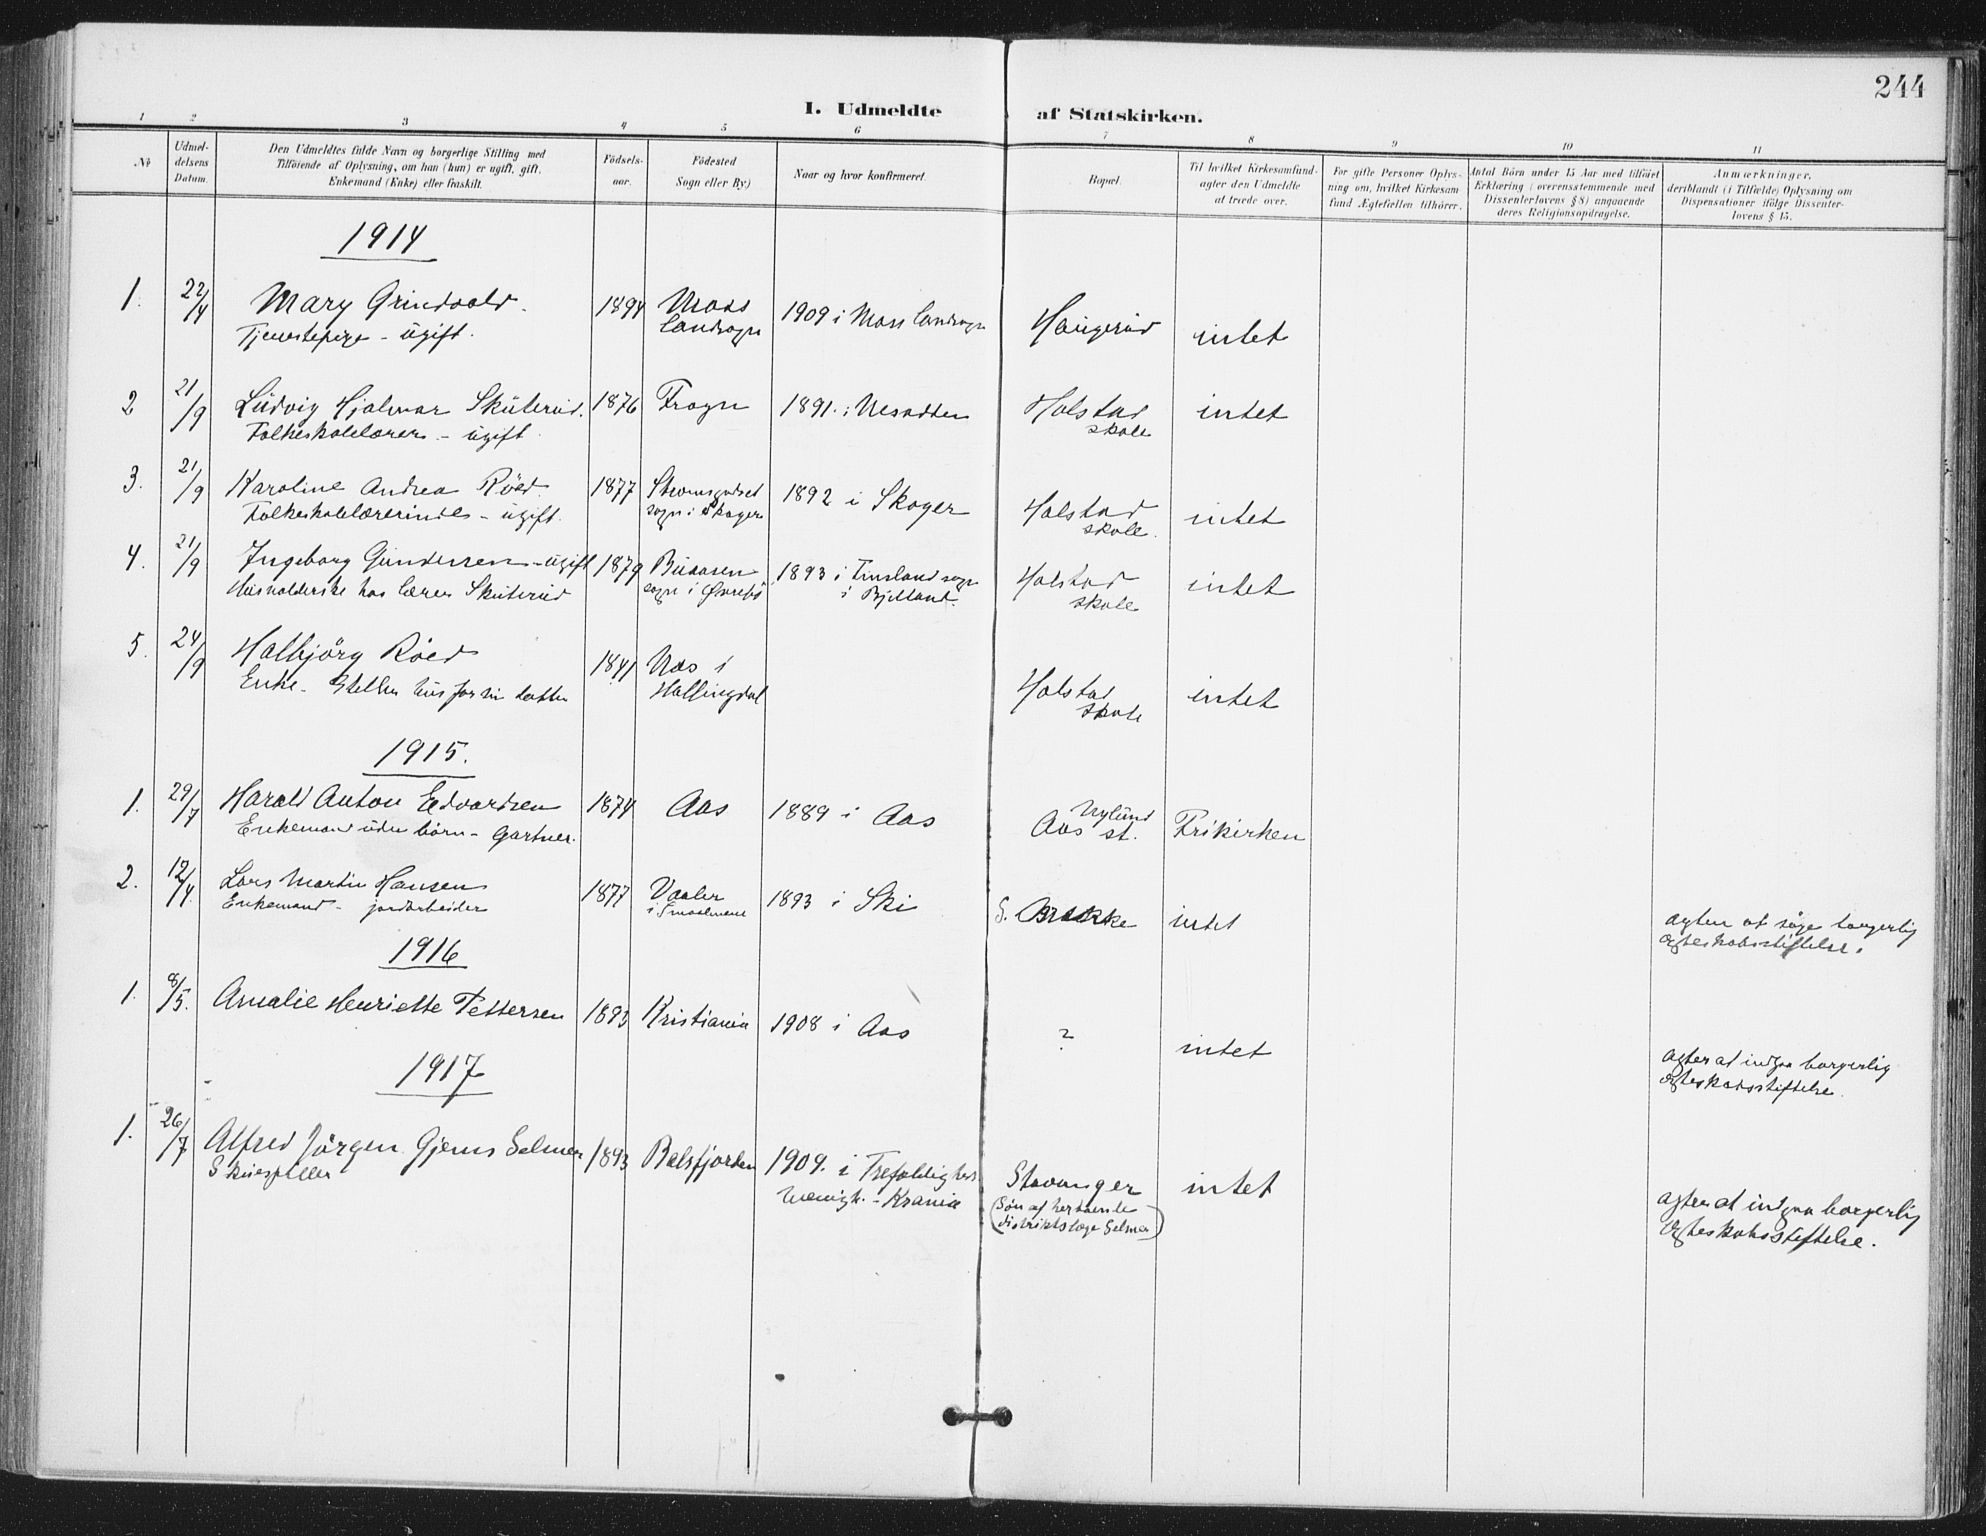 244
I. Udmeldte af Statskirken.
1 2 3 4 5 6 7 8 9 10 11
№
Udmel-
delsens
Datum.
Den Udmeldtes fulde Navn og borgerlige Stilling med
Tilföiende af Oplysning, om han (hun) er ugift, gift,
Enkemand (Enke) eller fraskilt.
Födsels-
aar.
Födested
Sogn eller By.)
Naar og hvor konfirmeret.
Bopæl.
Til hvilket Kirkesamfund
agter den Udmeldte
at træde over.
For gifte Personer Oplys-
ning om, hvilket Kirkesam
fund Ægtefællen tilhörer.
Antal Börn under 15 Aar med tilföiet
Erklæring (overensstemmende med
Dissenterlovens § 8) angaaende
deres Religionsopdragelse.
Anmærkninger,
deriblandt (i Tilfælde) Oplysning om
Dispensationer ifölge Dissenter-
lovens § 15.
1914
1. 22/4 Mary Grindvold. 1894 Moss 1909 i Moss landsogn Haugerud intet
Tjenestepige - ugift. landsogn
2 21/9 Ludvig Hjalmar Skuterud. 1876 Frogn 1891. i Nesodden Holstad intet
Folkeskolelærer - ugift. skole
3. 21/9 Karoline Andrea Röed. 1877 Strömsgodset 1892 i Skoger Holstad intet
Folkeskolelærerinde - ugift. sogn i Skoger skole.
4. 21/9 Ingeborg Gundersen - ugift 1879 1893 i Finsland sogn Holstad intet
Husholderske hos lærer Skuterud sogn i Øvrebö i Bjelland. skole
5. 24/9 Halbjörg Röed 1841 Næs i Holstad intet
Enke - Steller hus for sin datter Hallingdal skole
1915.
1. 29/7 Harald Anton Edvardsen 1874 Aas 1889 i Aas Nylund Frikirken
Enkemand uden börn - Gartner. Aas st.
2. 12/4. Lars Martin Hansen 1877 Vaaler 1893 i Ski S. Brække intet agter at söge borgerlig
Enkemand - jordarbeider i Smaalenene ægteskabsstiftelse.
1916
1. 8/5. Amalie Henriette Pettersen 1893 Kristiania 1908 i Aas ? intet agter at indgaa borgerlig
ægteskabsstiftelse.
1917
1. 26/7 Alfred Jörgen Gjems Selmer 1893 Balsfjorden 1909. i Trefoldigheds Stavanger intet agter at indgaa borgerlig
Skuespiller menigh. - Krania (Sön af herværende ægteskabsstiftelse.
distriktslæge Selmer)